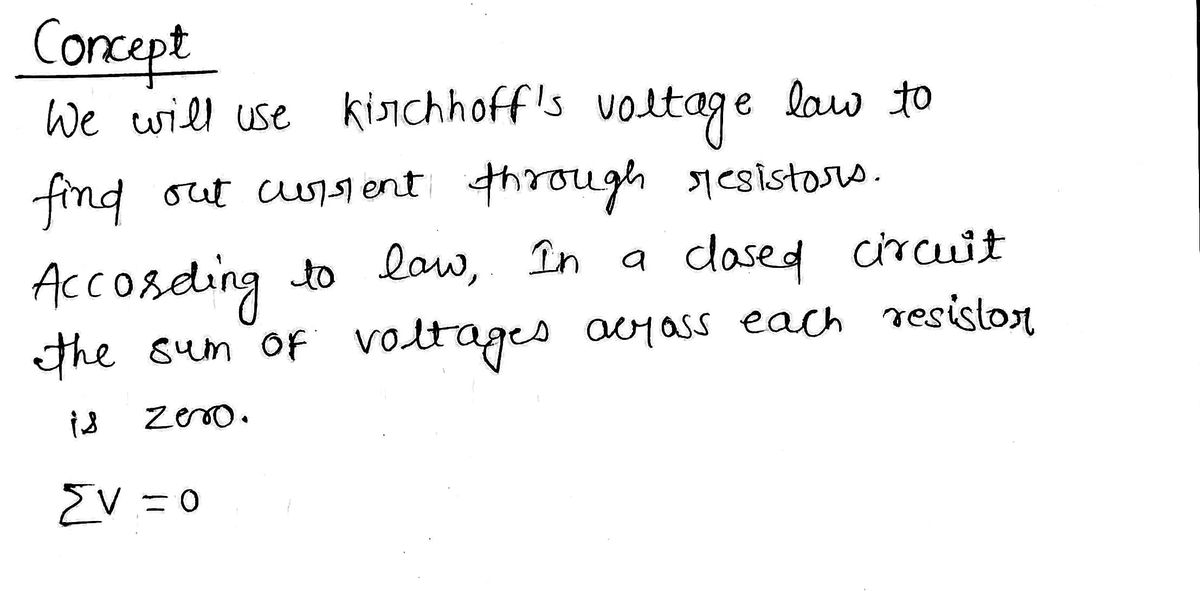 Concept
We will use kirchhoff's voltage law to
find out current through resistors.
According to law, In a closed circuit
the sum of voltages across each resistor
is zero.
ΣV = 0